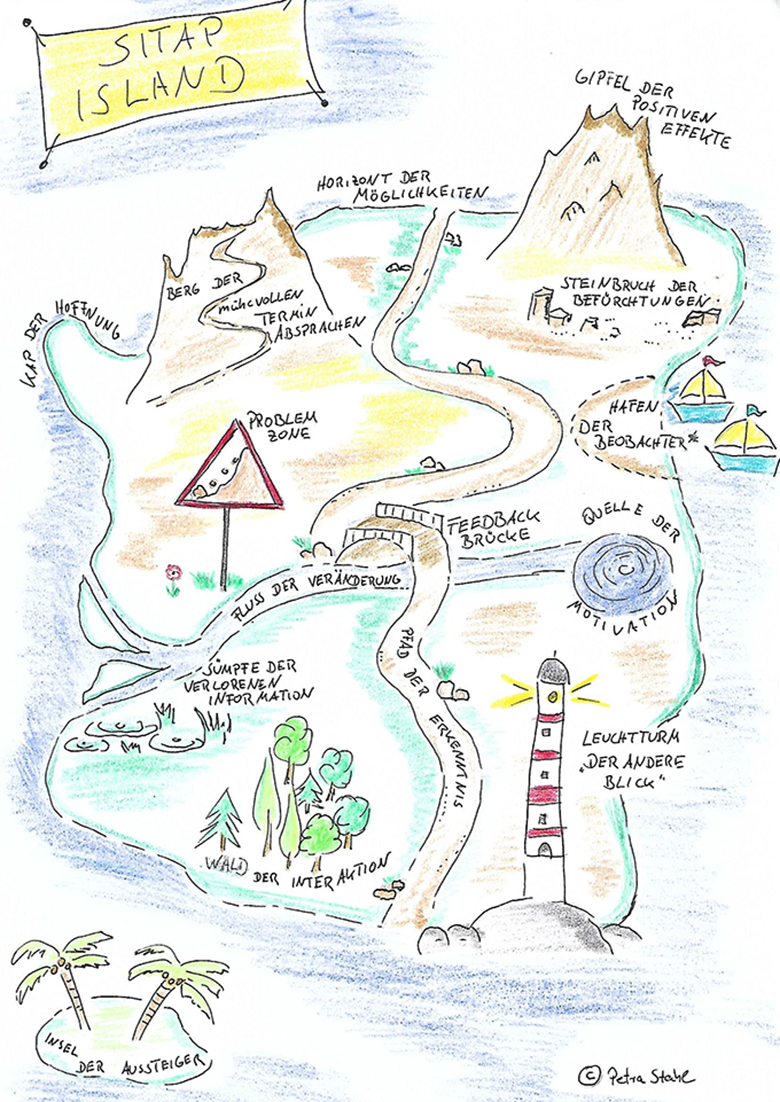 SITAP
ISLAND
GIPFEL DER
POSITIVEN
EFFEKTE
HORIZONT DER
MÖGLICHKEITEN
BERG DER
MÜHEVOLLEN
TERMIN
ABSPRACHEN
STEINBRUCH DER
BEFÜRCHTUNGEN
KAP DER HOFFNUNG
HAFEN
DER
BEOBACHTER*
PROBLEM
ZONE
FEEDBACK
BRÜCKE
QUELLE DER
MOTIVATION
FLUSS DER VERÄNDERUNG
PFAD DER ERKENNTNIS
SÜMPFE DER
VERLORENEN
INFORMATION
LEUCHTTURM
"DER ANDERE
BLICK"
WALD DER INTERAKTION
INSEL
DER AUSSTEIGER
© Petra Stahl